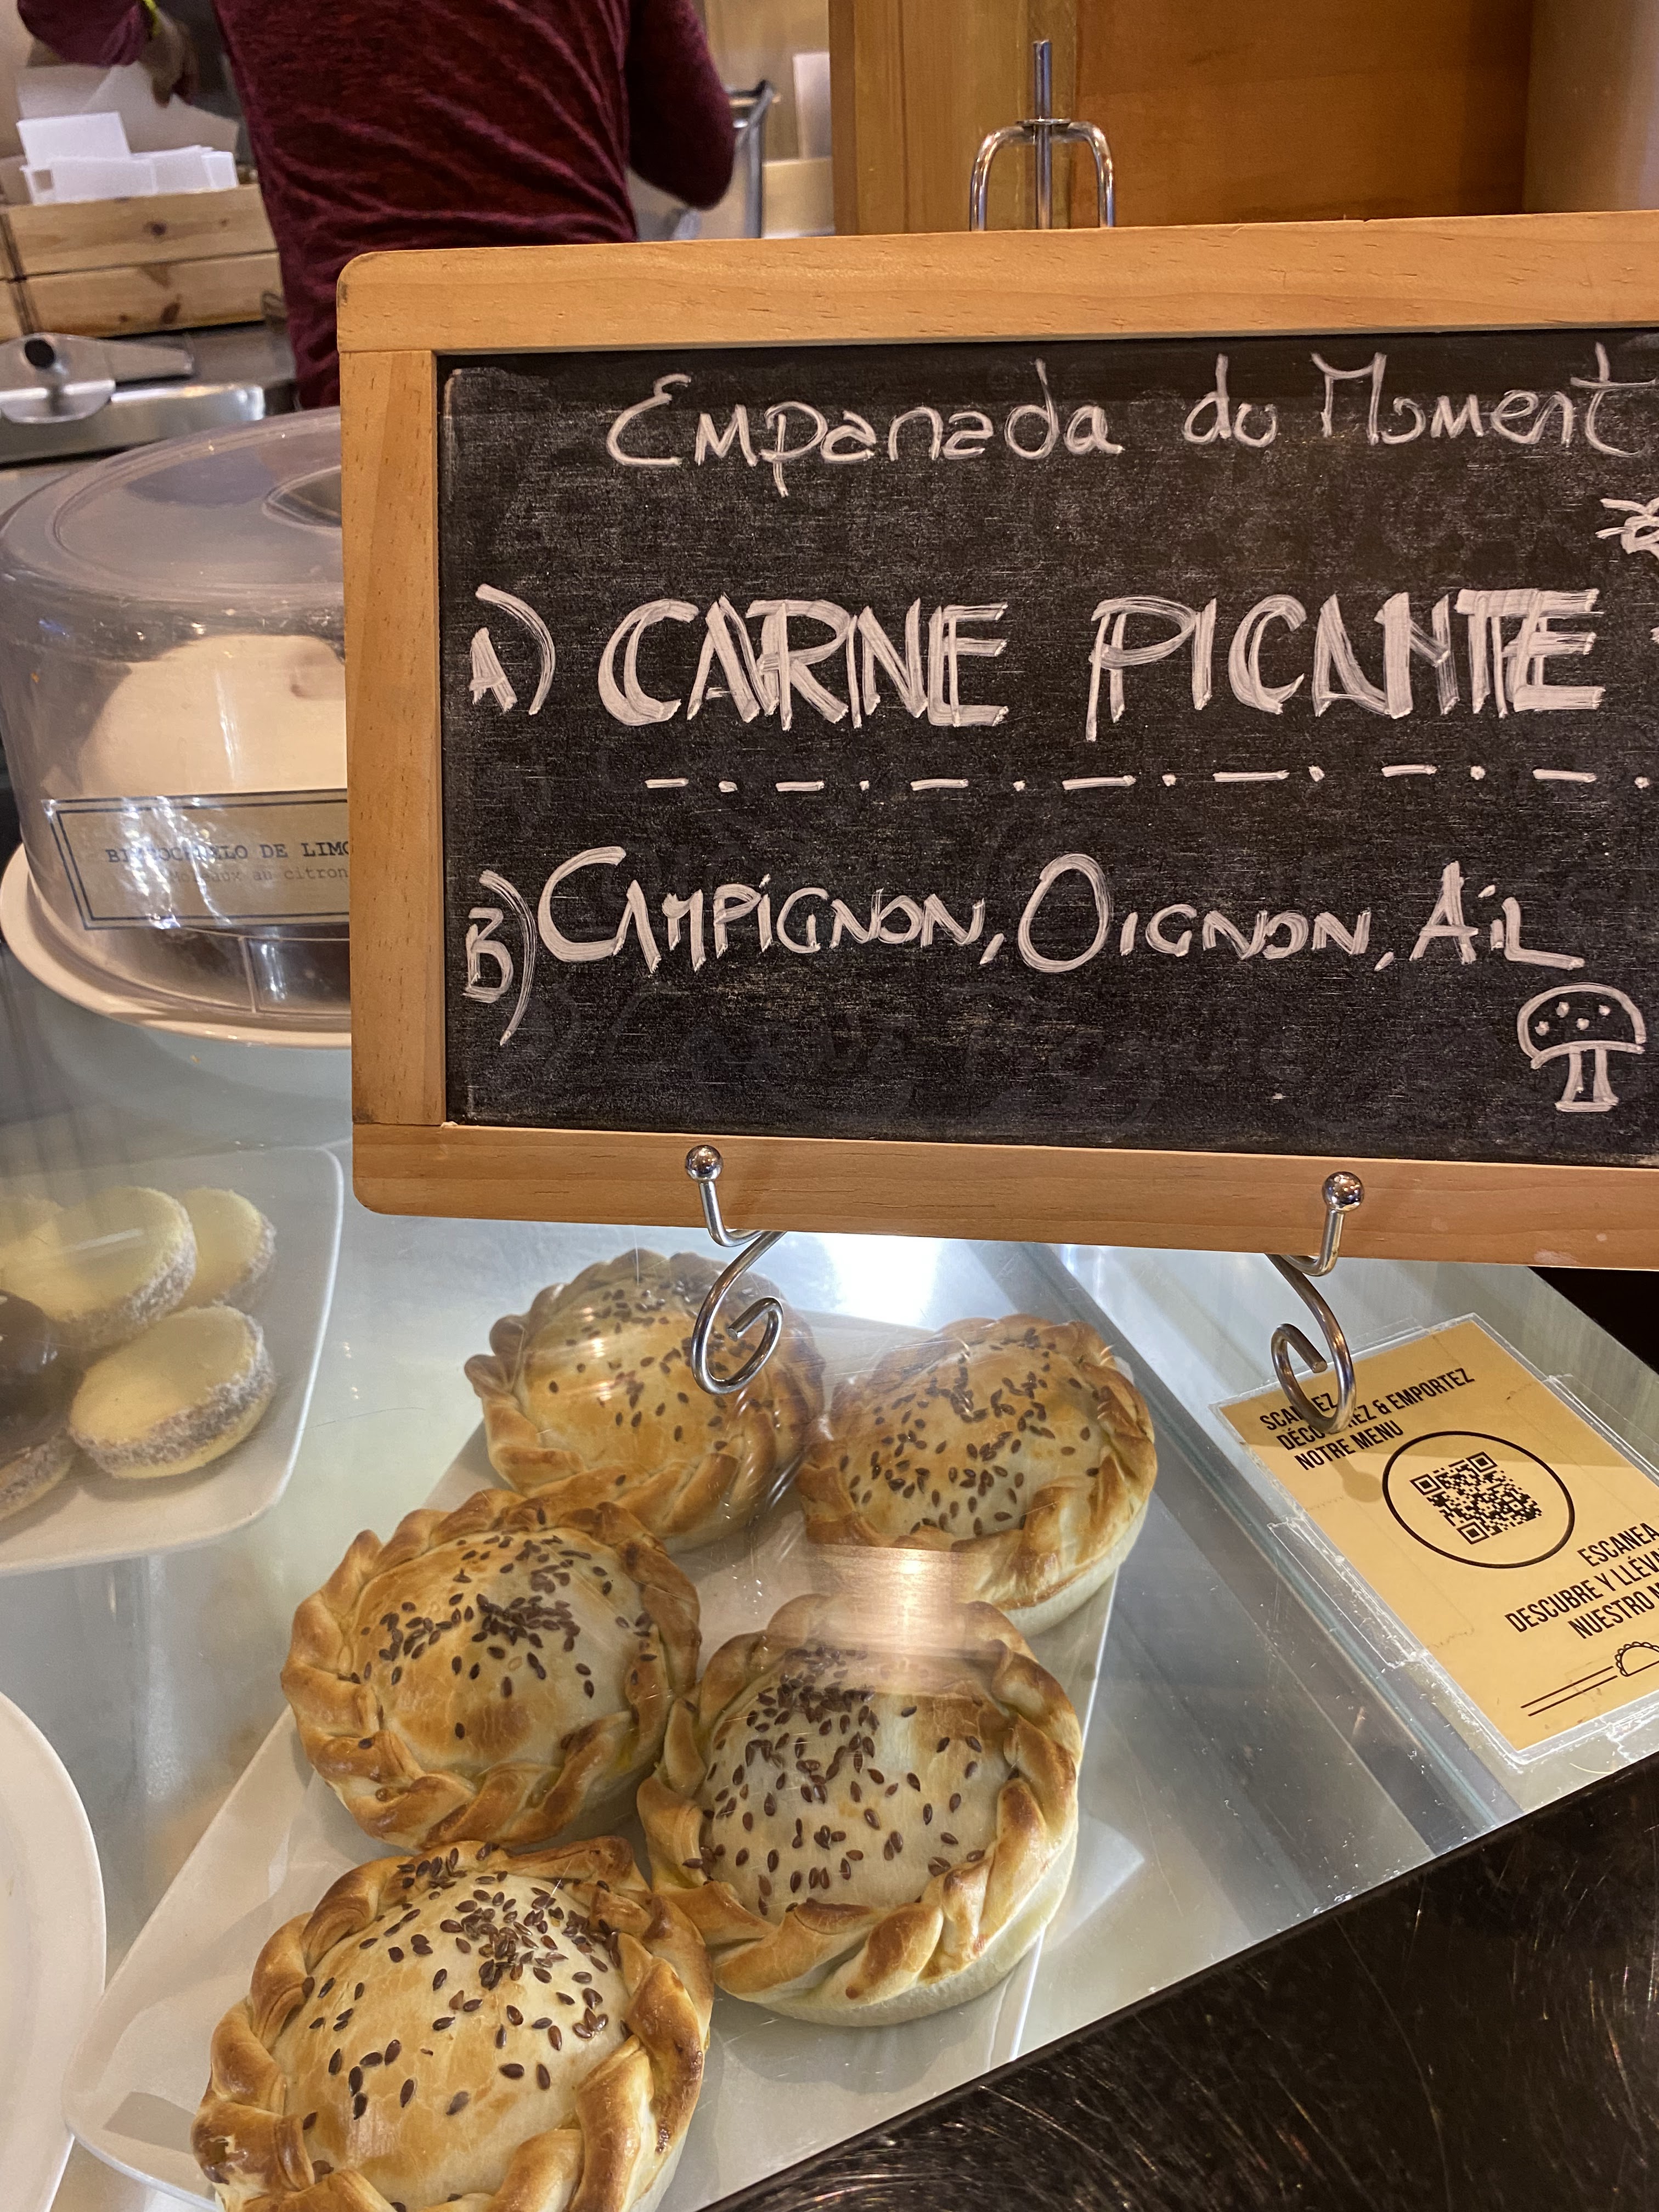 Empanada du Moment
A) CARNE PICANTE
B) CAMPIGNON, OIGNON, AIL
DE LIMO
au citron
& EMPORTEZ
NOTRE MENU
ESCANEA
DESCUBRE Y LLÉVA
NUESTRO M